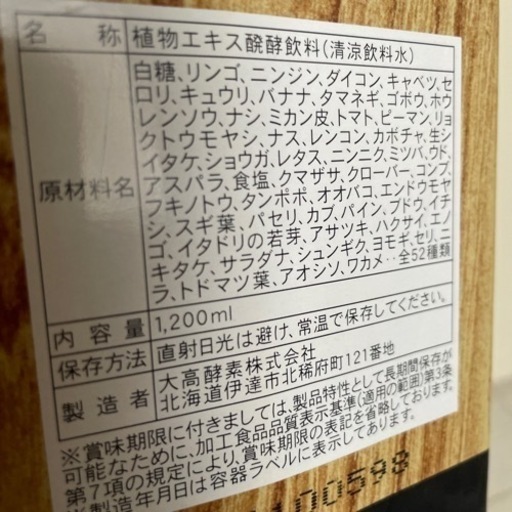 名称 植物エキス醗酵飲料(清涼飲料水)
原材料名
白糖、リンゴ、ニンジン、ダイコン、キャベツ、セ
ロリ、キュウリ、バナナ、タマネギ、ゴボウ、ホウ
レンソウ、ナシ、ミカン皮、トマト、ピーマン、リョ
クトウモヤシ、ナス、レンコン、カボチャ、生シ
イタケ、ショウガ、レタス、ニンニク、ミツバ、ウド、
アスパラ、食塩、クマザサ、クローバー、コンブ、
フキノトウ、タンポポ、オオバコ、エンドウモヤ
シ、スギ葉、パセリ、カブ、パイン、ブドウ、イチ
ゴ、イタドリの若芽、アサツキ、ハクサイ、エノ
キタケ、サラダナ、シュンギク、ヨモギ、セリ、ニ
ラ、トドマツ葉、アオシソ、ワカメ‥全52種類
内容量 1,200ml
保存方法 直射日光は避け、常温で保存してください。
製造者 大高酵素株式会社
北海道伊達市北稀府町121番地
※賞味期限に付きましては、製品特性として長期間保存が
可能なために、加工食品品質表示基準(適用の範囲)第3条
第7項の規定により、賞味期限の表記を省略しております。
※製造年月日は容器ラベルに表示しています。
100598